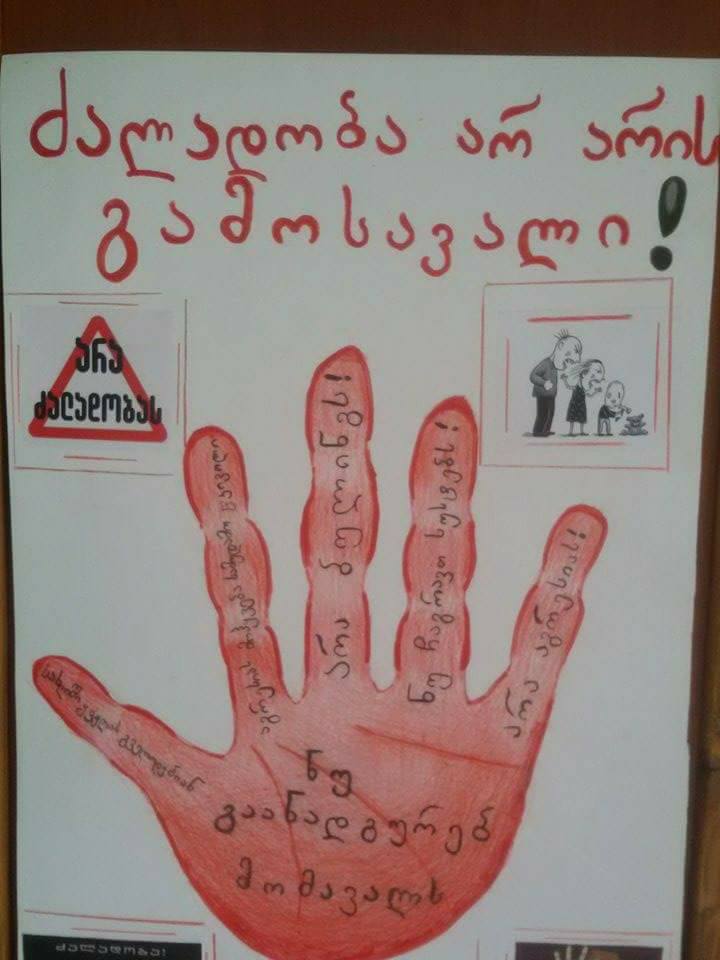 ძალადობა არ არის
გამოსავალი!
არა
ძალადობას
არა ბულინგს!
ნუ ჩაგრავთ სუსტებს!
არა აგრესიას!
ნუ
გაანადგურებ
მომავალს
ძალადობა!